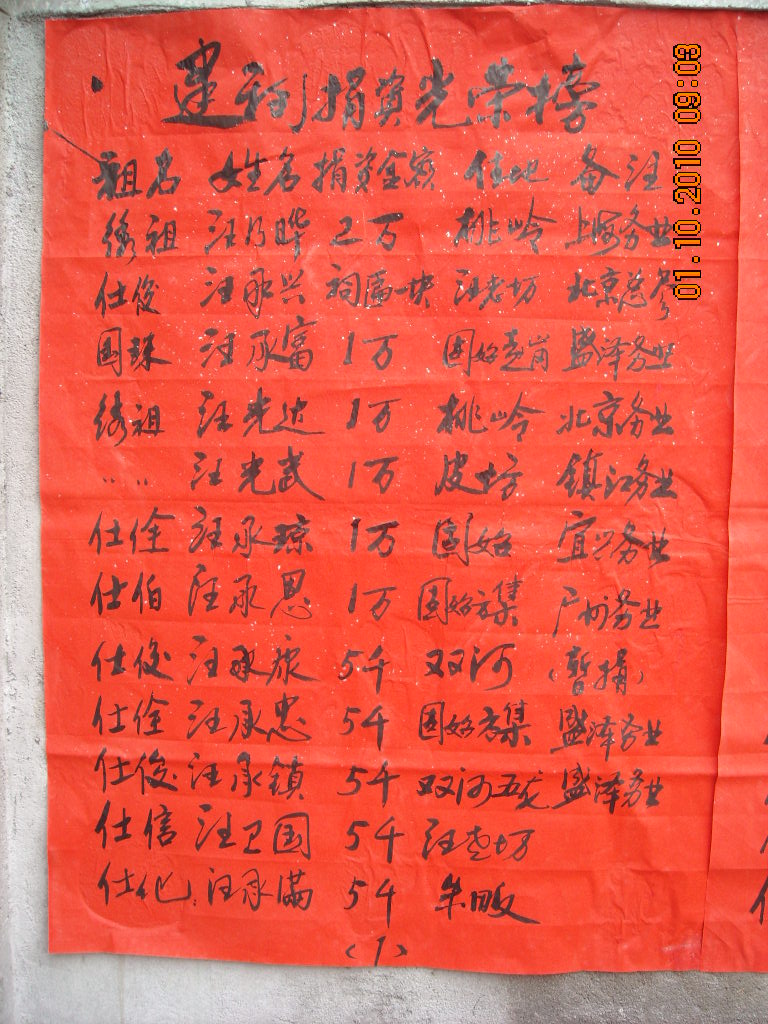 建祠捐资光荣榜
祖名 姓名 捐资金额 住地 备注
绣祖 汪乃晔 2万 桃岭 上海务业
仕俊 汪承兴 祠匾一块 汪老坊 北京总参
国珠 汪承富 1万 固始 盛泽务业
绣祖 汪光达 1万 桃岭 北京务业
〃 〃 汪光武 1万 皮坊 镇江务业
仕佺 汪承琼 1万 固始 宜兴务业
仕伯 汪承恩 1万 固始方集 广州务业
仕俊 汪承康 5千 双河 (暂捐)
仕佺 汪承忠 5千 固始方集 盛泽务业
仕俊 汪承镇 5千 双河五龙 盛泽务业
仕信 汪卫国 5千 汪老坊
仕化 汪承满 5千 牟畈
(1)
01.10.2010 09:03